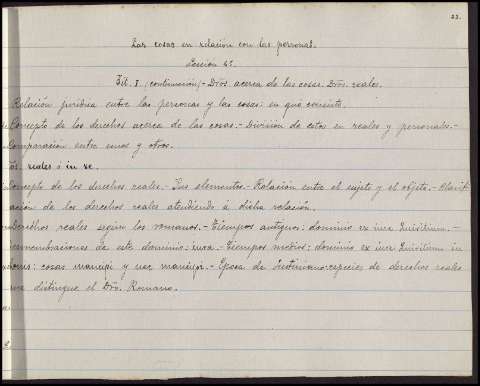 23.
Las cosas en relación con las personas.
Seccion 4ª.
Tit. I (continuación) - Dros acerca de las cosas. Dros. reales.
Relación juridica entre las personas y las cosas: en qué consiste.
Concepto de los derechos acerca de las cosas. - División de estos en reales y personales. -
Comparacion entre unos y otros.
os. reales ó in re.
Concepto de los derechos reales. - Sus elementos. - Relación entre el sujeto y el objeto. - Clasifi-
ación de los derechos reales atendiendo á dicha relación.
Derechos reales según los romanos. - Tiempos antiguos: dominio ex iure Quiritium. -
membraciones de este dominio: iura. - Tiempos medios: dominio ex iure Quiritium in
bonis: cosas mancipi y nec mancipi. - Epoca de Justiniano: especies de derechos reales
ue distingue el Dro. Romano.